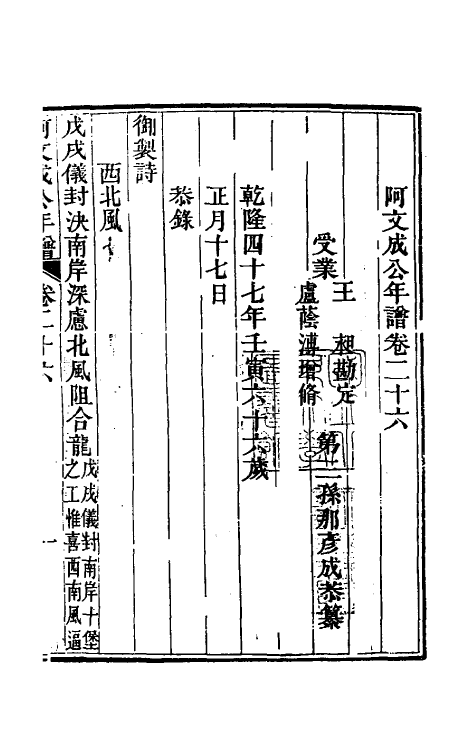 阿文成公年譜卷二十六
第二孫那彥成恭纂
受業
王昶勘定
盧蔭溥增修
乾隆四十七年壬寅六十六歲
正月十七日
恭錄
御製詩
西北風
戊戌儀封決南岸深慮北風阻合龍
戊戌儀封南岸十堡
之工惟喜西南風逼
阿文成公年譜
卷二十六
一